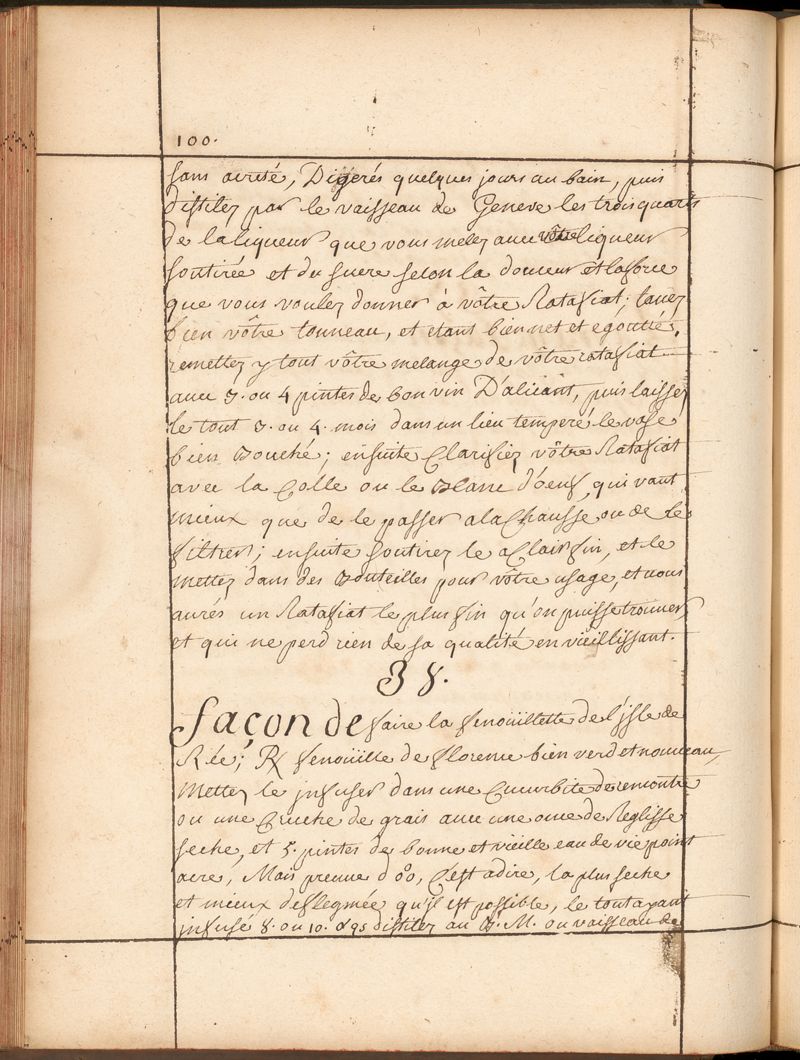 100.
sans acreté, Digerés quelques jours au bain, puis
distilez par le vaisseau de Geneve les trois quarts
de la liqueur que vous melez avec vôtre liqueur
soutirée et du sucre selon la douceur et la force
que vous voulez donner à vôtre Ratafiat; lavez
bien vôtre tonneau, et etant bien net et egoutté,
remettez y tout vôtre melange de vôtre ratafiat
avec 3. ou 4 pintes de bon vin D'alicant, puis laissez
le tout 3. ou 4. mois dans un lieu temperé le vase
bien Bouché; ensuite Clarifiez vôtre Ratafiat
avec la Colle ou le Blanc d'oeuf, qui vaut
mieux que de le passer a la Chausse ou de le
filtrer; ensuite soutirez le a Clair fin, et le
mettez dans des Bouteilles pour vôtre usage, et vous
aurés un Ratafiat le plus fin qu'on puisse trouver,
et qui ne perd rien de sa qualité en vieillissant.
38.
Façon de faire la fenoüillette de l'jsle de
Rée; R/ fenoüille de florence bien verd et nouveau,
Mettez le jnfuser dans une Cucurbite de rencontre
ou une Cruche de grais avec une once de Reglisse
seche, et 5. pintes de bonne et vieille eau de vie point
acre, Mais preuve d'%, C'est adire, la plus seche
et mieux deflegmée qu'jl est possible, le tout ayant
jnfusé 8. ou 10. distilez au B. M. ou vaisseau de